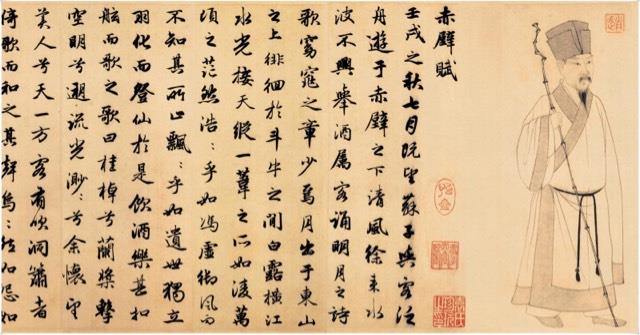 赤壁賦
壬戌之秋七月既望蘇子與客泛
舟遊于赤壁之下清風徐来水
波不興舉酒属客誦明月之詩
歌窈窕之章少焉月出于東山
之上徘徊於斗牛之間白露橫江
水光接天縱一葦之所如淩萬
頃之茫然浩〻乎如馮虚御風而
不知其所止飄〻乎如遺世獨立
羽化而登仙於是飲酒樂甚扣
舷而歌之歌曰桂棹兮蘭槳擊
空明兮遡流光渺〻兮余懷望
美人兮天一方客有吹洞簫者
倚歌而和之其聲烏〻然如怨如